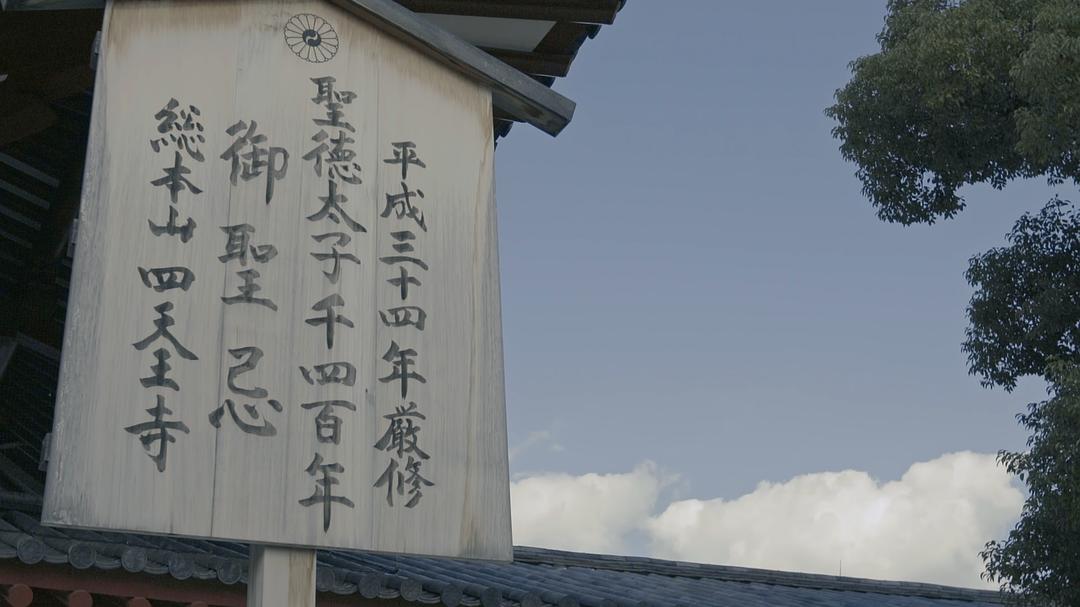 平成三十四年厳修
聖徳太子千四百年
御聖忌
総本山四天王寺